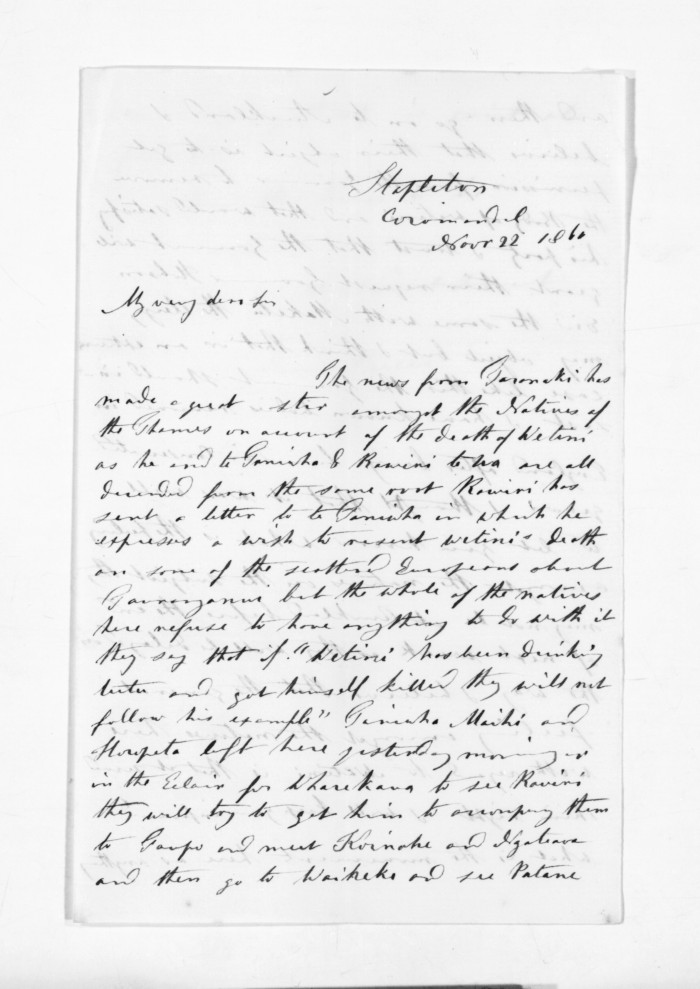 Stapleton
Coromandel
Novr 22 1860
My very dear Sir
The news from Taranaki has
made a great stir amongst the Natives of
the Thames on account of the death of Wetini
as he and te Taniwha & Rawiri te ua are all
decended from the same root Rawiri has
sent a letter to te Taniwha in which he
expreses a wish to resent wetinis death
on some of the scatterd Europeans about
but the whole of the natives
here refuse to have anything to do with it
they say that if "Wetini has been drinking
tutu and got himself killed they will not
follow his example" Taniwha Maihi and
Horopeta left here yesterday morning
in the Eclair for Wharekawa to see Rawiri
they will try to get him to accompany them
to Taupo and meet and
and then go to Waiheke and see Patane